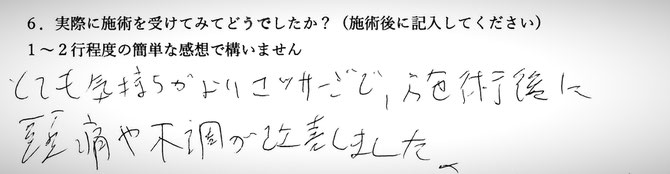 6．実際に施術を受けてみてどうでしたか？（施術後に記入してください）
1～2行程度の簡単な感想で構いません
とても気持ちがよいマッサージで，施術後に
頭痛や不調が改善しました。